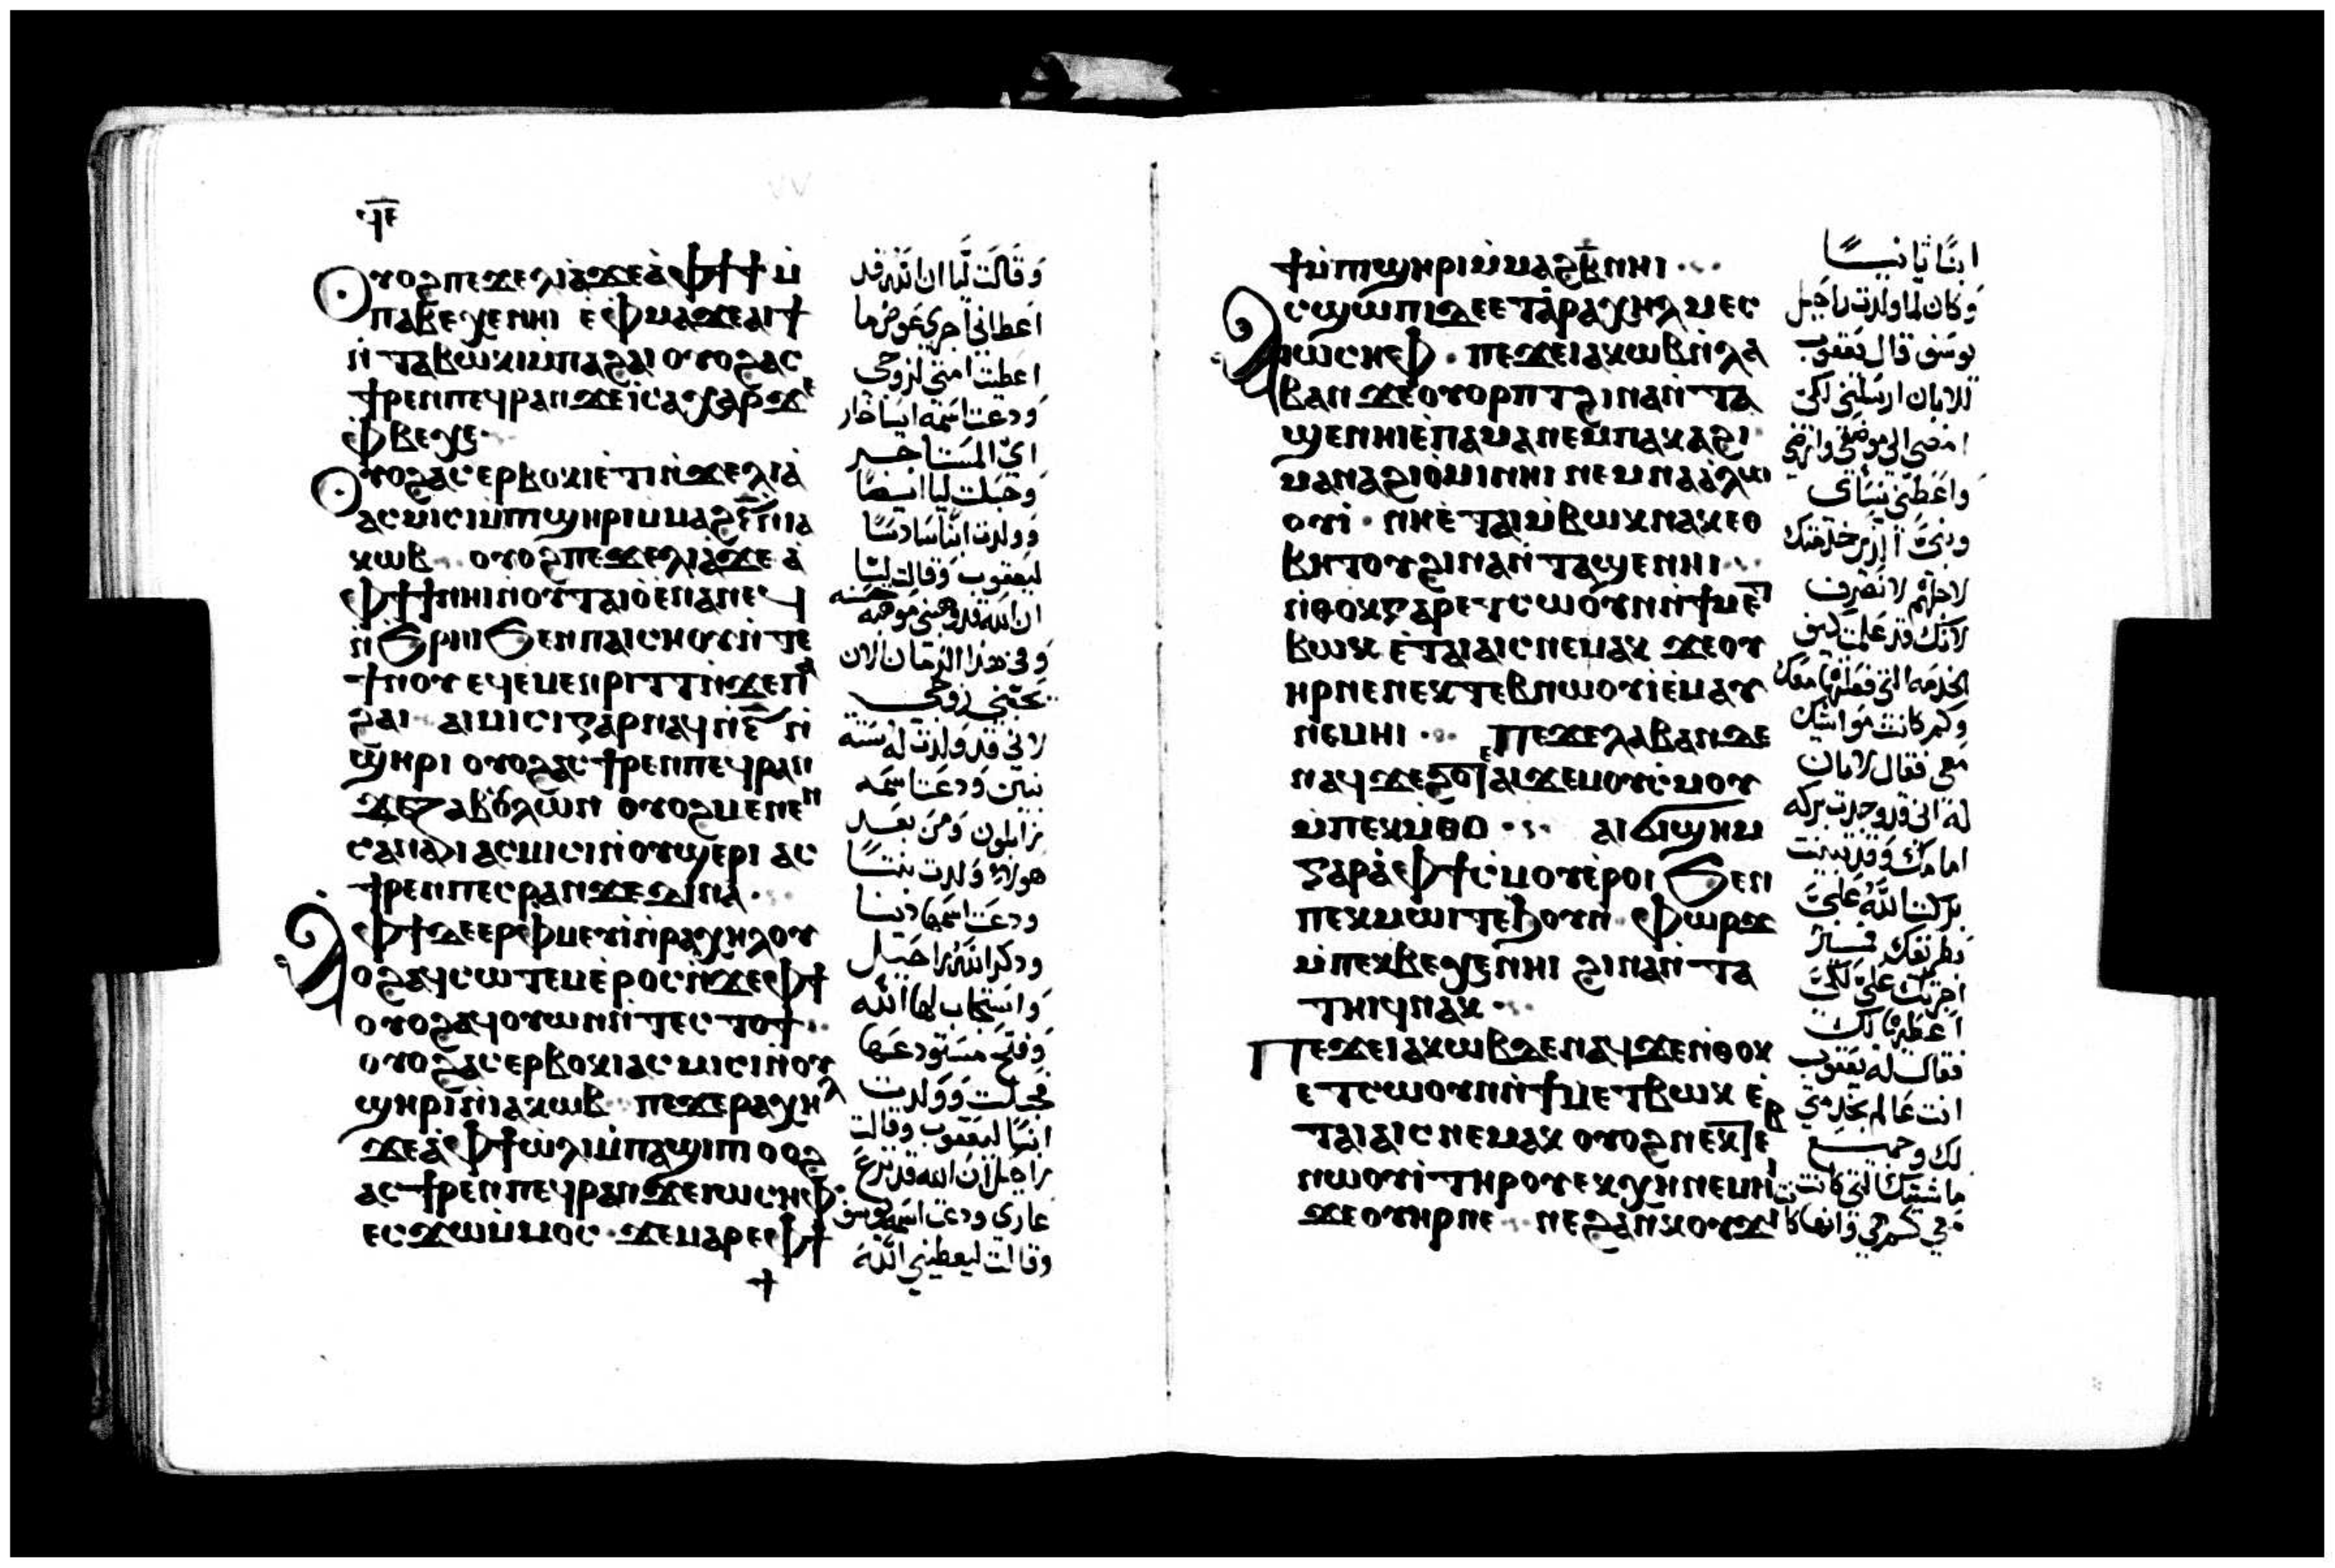 ϥⲉ
ⲟⲩⲟϩ ⲡⲉϫⲉ ⲗⲓⲁ̀ ϫⲉ ⲁ̀ ⲫϯ ϯ ⲙ̀
ⲡⲁⲃⲉⲭⲉ ⲛⲏⲓ ⲉ̀ⲫⲙⲁ ϫⲉ ⲁⲓϯ
ⲛ̀ⲧⲁⲃⲱⲕⲓ ⲙ̀ⲡⲁϩⲁⲓ ⲟⲩⲟϩ ⲁⲥ
ϯⲣⲉⲛ ⲡⲉϥⲣⲁⲛ ϫⲉ ⲓⲥⲁⲭⲁⲣ ϫⲉ
ⲫⲃⲉⲭⲉ
ⲟⲩⲟϩ ⲁⲥⲉⲣⲃⲟⲕⲓ ⲉ̀ⲧⲓ ⲛ̀ϫⲉ ⲗⲓⲁ̀
ⲁⲥⲙⲓⲥⲓ ⲙ̀ⲡϣⲏⲣⲓ ⲙ̀ⲙⲁϩⲋ̅ ⲛ̀ⲓⲁ
ⲕⲱⲃ ⲟⲩⲟϩ ⲡⲉϫⲉ ⲗⲓⲁ̀ ϫⲉ ⲁ̀
ⲫϯ ϯ ⲛⲏⲓ ⲛ̀ⲟⲩⲧⲁⲓⲟ̀ ⲉⲛⲁⲛⲉϥ
ⲛ̀ϧⲣⲏⲓ ϧⲉⲛ ⲡⲁⲓⲥⲏⲟⲩ ⲛ̀ⲧⲉ
ϯⲛⲟⲩ ⲉϥⲉⲙⲉⲛⲣⲓⲧⲧ ⲛ̀ϫⲉ ⲡⲁ
ϩⲁⲓ ⲁⲓⲙⲓⲥⲓ ⲅⲁⲣ ⲛⲁϥ ⲛ̀ⲋ̅ ⲛ̀
ϣⲏⲣⲓ ⲟⲩⲟϩ ⲁⲥϯⲣⲉⲛ ⲡⲉϥⲣⲁⲛ
ϫⲉ ⲍⲁⲃⲟⲗⲱⲛ ⲟⲩⲟϩ ⲙⲉⲛⲉⲛ
ⲥⲁ ⲛⲁⲓ ⲁⲥⲙⲓⲥⲓ ⲛ̀ⲟⲩϣⲉⲣⲓ ⲁⲥ
ϯⲣⲉⲛ ⲡⲉⲥⲣⲁⲛ ϫⲉ ⲇⲓⲛⲁ
ⲁ̀ ⲫϯ ⲇⲉ ⲉⲣⲫⲙⲉⲩⲓ̀ ⲛ̀ⲣⲁⲭⲏⲗ ⲟⲩ
ⲟϩ ⲁϥⲥⲱⲧⲉⲙ ⲉ̀ⲣⲟⲥ ⲛ̀ϫⲉ ⲫϯ
ⲟⲩⲟϩ ⲁϥⲟⲩⲱⲛ ⲛ̀ⲧⲉⲥⲧⲟϯ
ⲟⲩⲟϩ ⲁⲥⲉⲣⲃⲟⲕⲓ ⲁⲥⲙⲓⲥⲓ ⲛ̀ⲟⲩ
ϣⲏⲣⲓ ⲛ̀ⲓⲁⲕⲱⲃ ⲡⲉϫⲉ ⲣⲁⲭⲏⲗ
ϫⲉ ⲁ̀ ⲫϯ ⲱ̀ⲗⲓ ⲙ̀ⲡⲁϣⲓⲡⲓ ⲟⲩⲟϩ
ⲁⲥϯⲣⲉⲛ ⲡⲉϥⲣⲁⲛ ϫⲉ ⲓⲱⲥⲏⲫ
ⲉⲥϫⲱ ⲙ̀ⲙⲟⲥ ϫⲉ ⲙⲁⲣⲉ ⲫϯ
وقالت ليا ان الله قد
اعطاني اجري عوض ما
اعطيت امتي لزوجي
ودعت اسمه ايساخار
اي المستاجر
وحبلت ليا ايضا
وولدت ابنا سادسا
ليعقوب وقالت ليا
ان الله قد وهبني موهبة حسنه
وفي هذا الزمان الان
يحبني زوجي
لاني قد ولدت له ستة
بنين ودعت اسمه
زابلون ومن بعد
هولاء ولدت بنتا
ودعت اسمها دينا
وذكر الله راحيل
واستجاب لها الله
وفتح مستودعها
فحبلت وولدت
ابنا ليعقوب وقالت
راحيل ان الله قد نزع
عاري ودعت اسمه يوسف
وقالت ليعطيني الله
ϯ ⲙ̀ⲡϣⲏⲣⲓ ⲙ̀ⲙⲁϩⲃ̅ ⲛⲏⲓ
ⲁⲥϣⲱⲡⲓ ⲇⲉ ⲉ̀ⲧⲁ ⲣⲁⲭⲏⲗ ⲙⲉⲥ
ⲓⲱⲥⲏⲫ ⲡⲉϫⲉ ⲓⲁⲕⲱⲃ ⲛ̀ⲗⲁ
ⲃⲁⲛ ϫⲉ ⲟⲩⲟⲣⲡⲧ ϩⲓⲛⲁ ⲛ̀ⲧⲁ
ϣⲉ ⲛⲏⲓ ⲉ̀ⲡⲁⲙⲁ ⲛⲉⲙ ⲡⲁⲕⲁϩⲓ
ⲙⲁ ⲛⲁϩⲓⲟ̀ⲙⲓ ⲛⲏⲓ ⲛⲉⲙ ⲛⲁⲁ̀ⲗⲱ
ⲟⲩⲓ̀ ⲛⲏ ⲉ̀ⲧⲁⲓⲙ̀ⲃⲱⲕ ⲛⲁⲕ ⲉⲑ
ⲃⲏⲧⲟⲩ ϩⲓⲛⲁ ⲛ̀ⲧⲁϣⲉ ⲛⲏⲓ
ⲛ̀ⲑⲟⲕ ⲅⲁⲣ ⲉⲧⲥⲱⲟⲩⲛ ⲛ̀ϯⲙⲉⲧ
ⲃⲱⲕ ⲉ̀ⲧⲁⲓⲁⲓⲥ ⲛⲉⲙⲁⲕ ϫⲉ ⲟⲩ
ⲏⲣ ⲛⲉ ⲛⲉⲕⲧⲉⲃⲛⲱⲟⲩⲓ̀ ⲉ̀ⲙⲁⲩ
ⲛⲉⲙⲏⲓ ⲡⲉϫⲉ ⲗⲁⲃⲁⲛ ⲇⲉ
ⲛⲁϥ ϫⲉ ⲁⲓϫⲉⲙ ⲟⲩⲥ̀ⲙⲟⲩ
ⲙ̀ⲡⲉⲕⲙ̀ⲑⲟ ⲁⲓϭⲓϣⲏⲙ
ⲅⲁⲣ ⲁ̀ ⲫϯ ⲥ̀ⲙⲟⲩ ⲉ̀ⲣⲟⲓ ϧⲉⲛ
ⲡⲉⲕⲙⲱⲓⲧ ⲉ̀ϧⲟⲩⲛ ⲫⲱⲣϫ
ⲙ̀ⲡⲉⲕⲃⲉⲭⲉ ⲛⲏⲓ ϩⲓⲛⲁ ⲛ̀ⲧⲁ
ⲧⲏⲓϥ ⲛⲁⲕ
ⲡⲉϫⲉ ⲓⲁⲕⲱⲃ ⲇⲉ ⲛⲁϥ ϫⲉ ⲛ̀ⲑⲟⲕ
ⲉⲧⲥⲱⲟⲩⲛ ⲛ̀ϯⲙⲉⲧⲃⲱⲕ ⲉ̀
ⲧⲁⲓⲁⲓⲥ ⲛⲉⲙⲁⲕ ⲟⲩⲟϩ ⲛⲉⲕⲧⲉⲃ
ⲛⲱⲟⲩⲓ̀ ⲧⲏⲣⲟⲩ ⲉⲕⲭⲏ ⲛⲉⲙⲏⲓ
ϫⲉ ⲟⲩⲏⲣ ⲛⲉ ⲛⲉ ϩⲁⲛⲕⲟⲩϫⲓ
ابنا ثانيا
وكان لما ولدت راحيل
يوسف قال يعقوب
للابان ارسلني لكي
امضي الي موضعي وارضي
واعطني نساي
وبني الذين خدمتك
لاجلهم لانصرف
لانك قد علمت كيف
الخدمه التي فعلتها معك
وكم كانت مواشيك
معي فقال لابان
له اني قد وجدت بركه
امامك وقد تبينت
بركت الله علي
بطريقك
اجرتك علي لكي
اعطيها لك
فقال له يعقوب
انت عالم بخدمتي
لك وجميع
ماشيتك التي كانت
معي كم هي وانها كانت